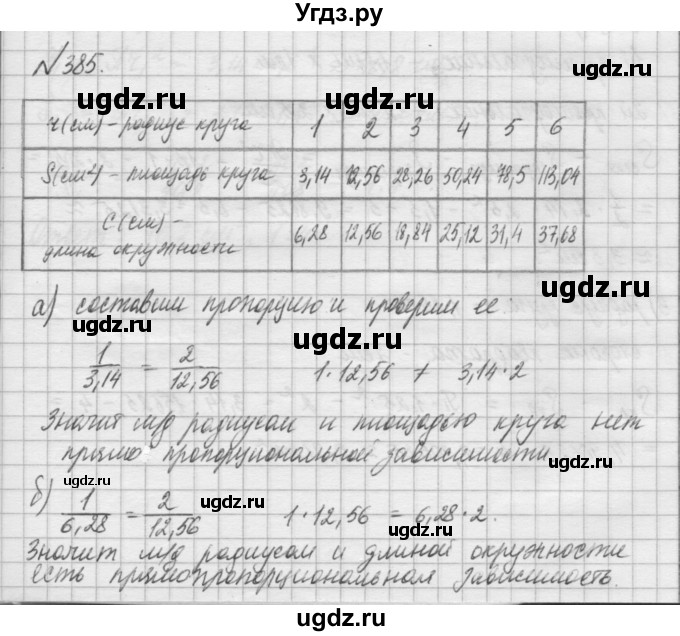 Угдз.ру
№385.
r(см) - радиус круга 1 2 3 4 5 6
S(см²) - площадь круга 3,14 12,56 28,26 50,24 78,5 113,04
C(см) -
длина окружности 6,28 12,56 18,84 25,12 31,4 37,68
ugdz.ru ugdz.ru ugdz.ru
а) составим пропорцию и проверим её.
ugdz.ru ugdz.ru
1/3,14 = 2/12,56 1·12,56 ≠ 3,14·2
ugdz.ru
Значит м/д радиусом и площадью круга нет
прямо пропорциональной зависимости.
ugdz.ru ugdz.ru
б) 1/6,28 = 2/12,56 1·12,56 = 6,28·2.
ugdz.ru ugdz.ru
Значит м/д радиусом и длиной окружности
есть прямопропорциональная зависимость.
ugdz.ru ugdz.ru